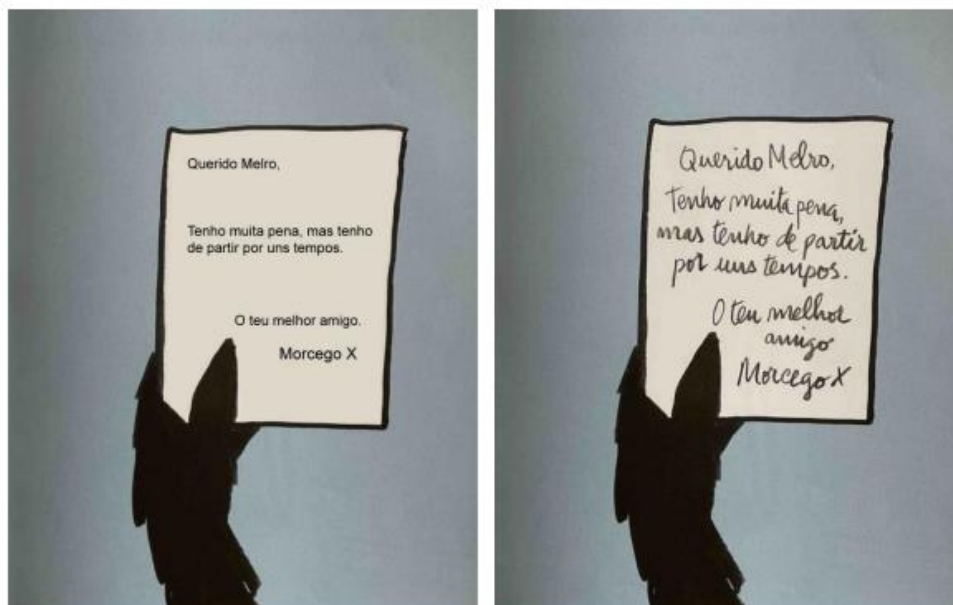 Querido Melro,
Tenho muita pena, mas tenho
de partir por uns tempos.
O teu melhor amigo.
Morcego X
Querido Melro,
Tenho muita pena,
mas tenho de partir
por uns tempos.
O teu melhor
amigo
Morcego X